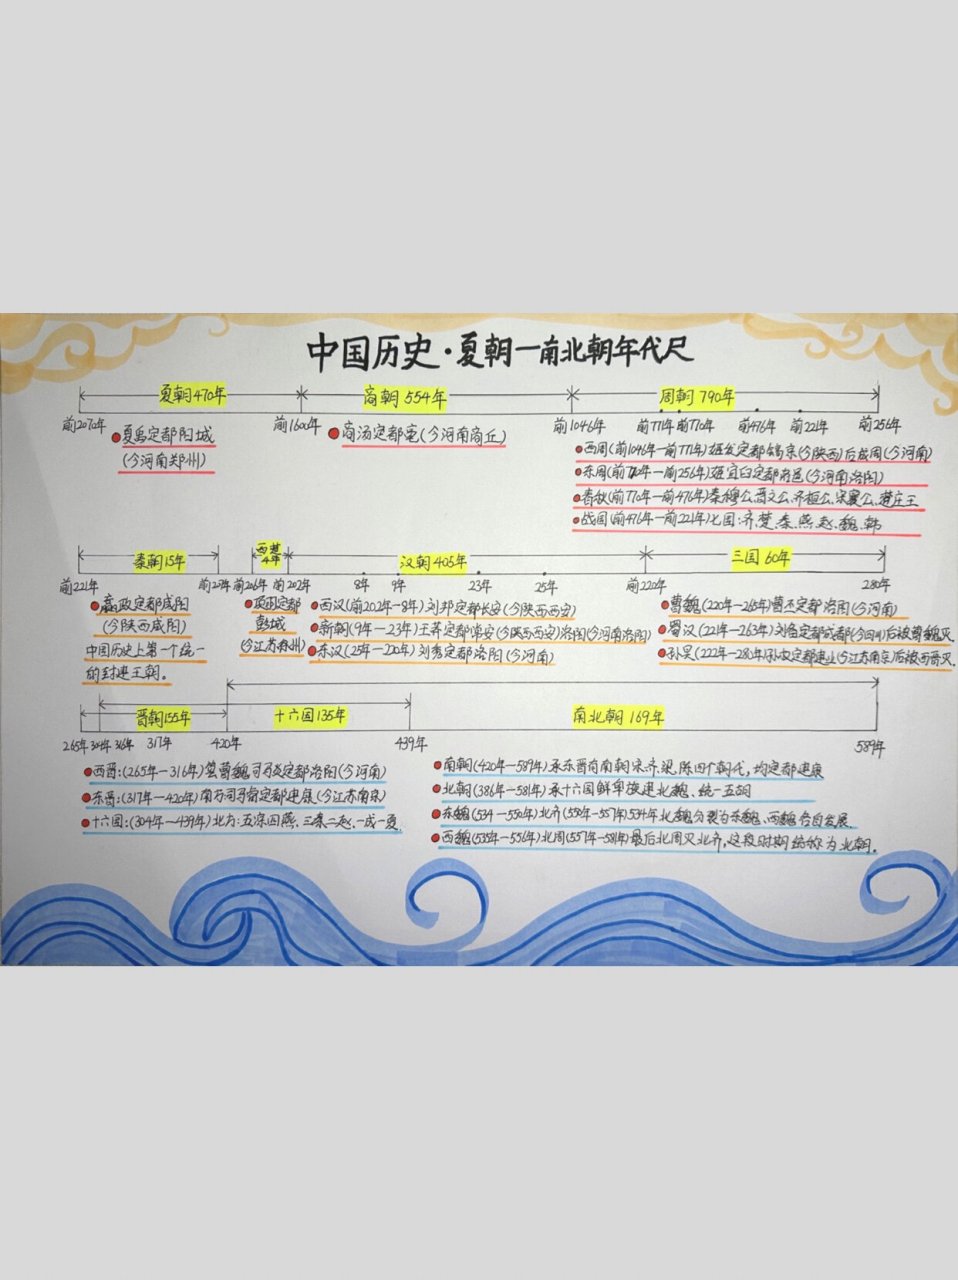 中国历史·夏朝—南北朝年代尺
夏朝470年 商朝554年 周朝790年
前2070年 前1600年 前1046年 前771年 前770年 前476年 前221年 前256年
夏禹定都阳城
(今河南郑州)
商汤定都亳(今河南商丘)
西周(前1046年—前771年)姬发定都镐京(今陕西)后成周(今河南)
东周(前770年—前256年)姬宜臼定都洛邑(今河南洛阳)
春秋(前770年—前476年)秦穆公、晋文公、齐桓公、宋襄公、楚庄王
战国(前476年—前221年)七国:齐、楚、秦、燕、赵、魏、韩
秦朝15年 西楚4年 汉朝405年 三国60年
前221年 前207年 前206年 前202年 8年 9年 23年 25年 前220年 280年
嬴政定都咸阳
(今陕西咸阳)
中国历史上第一个统一
的封建王朝。
项羽定都
彭城
(今江苏徐州)
西汉(前202年—8年)刘邦定都长安(今陕西西安)
新朝(9年—23年)王莽定都常安(今陕西西安)洛阳(今河南洛阳)
东汉(25年—220年)刘秀定都洛阳(今河南)
曹魏(220年—265年)曹丕定都洛阳(今河南)
蜀汉(221年—263年)刘备定都成都(今四川)后被曹魏灭
孙吴(222年—280年)孙权定都建业(今江苏南京)后被西晋灭.
晋朝155年 十六国135年 南北朝169年
265年 304年 316年 317年 420年 439年 589年
西晋:(265年—316年)篡曹魏司马炎定都洛阳(今河南)
东晋:(317年—420年)南方司马睿定都建康(今江苏南京)
十六国:(304年—439年)北方:五凉四燕、三秦二赵、一成一夏.
南朝(420年—589年)承东晋有南朝宋、齐、梁、陈四个朝代,均定都建康
北朝(386年—581年)承十六国鲜卑族建北魏、统一五胡
东魏(534—550年)北齐(550年—577年)534年北魏分裂为东魏、西魏各自发展.
西魏(535年—556年)北周(557年—581年)最后北周灭北齐,这段时期统称为北朝。